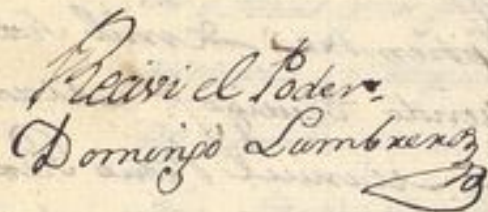 Recivi el Poder.
Domingo Lumbreras